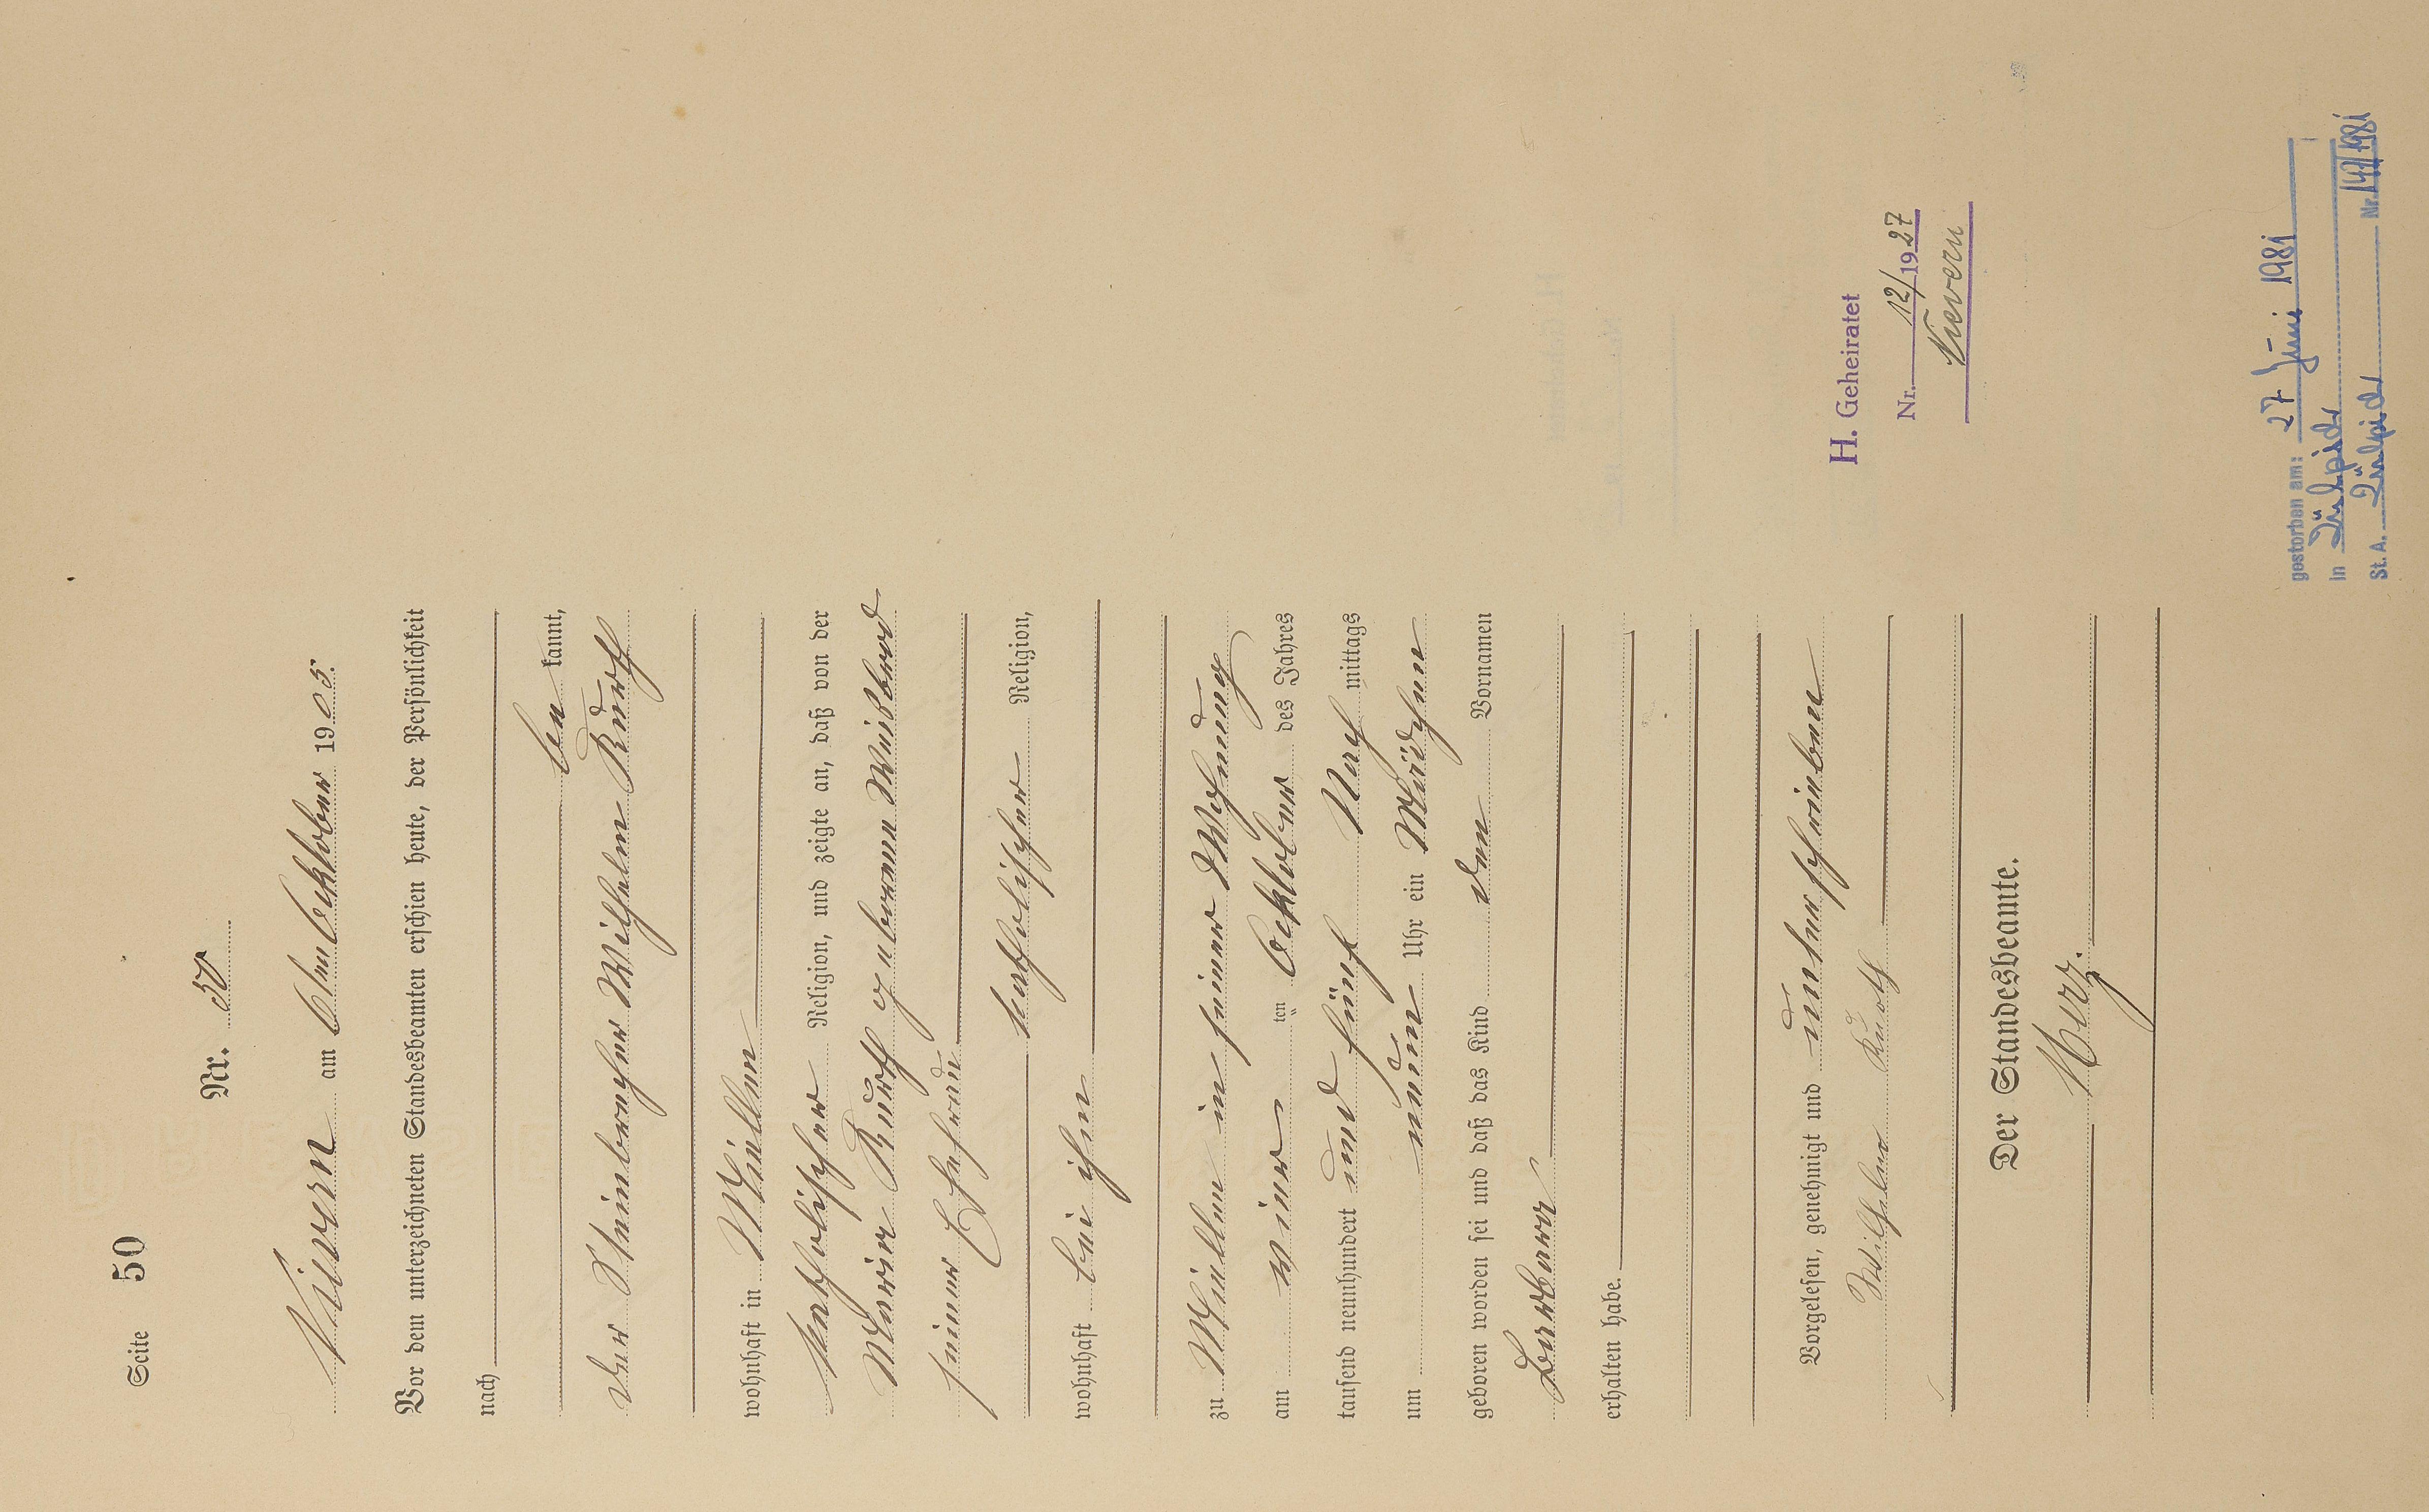 Seite 50
Nr. 50
Nievern am 6ten Oecktober 1905.
Vor dem unterzeichneten Standesbeamten erschien heute, der Persönlichkeit
nach
be kannt,
der Steinbrecher Wilhelm Kurth
wohnhaft in Miellen
katholischer Religion, und zeigte an, daß von der
Maria Kurth geborenen
seiner Ehefrau
katholischer Religion,
wohnhaft bei ihm
zu Miellen in seiner Wohnung
am ten Oecktober des Jahres
tausend neunhundert und fünf Nach mittags
um neun Uhr ein Mädchen
geboren worden sei und daß das Kind den Vornamen
Barbara
erhalten habe.
Vorgelesen, genehmigt und unterschrieben
Wilhelm Kurth
Der Standesbeamte.
H. Geheiratet
Nr. 12/1927
Nievern
gestorben am: 27 Juni 1981
in Zülpich
St. A. Zülpich Nr. 147/1981